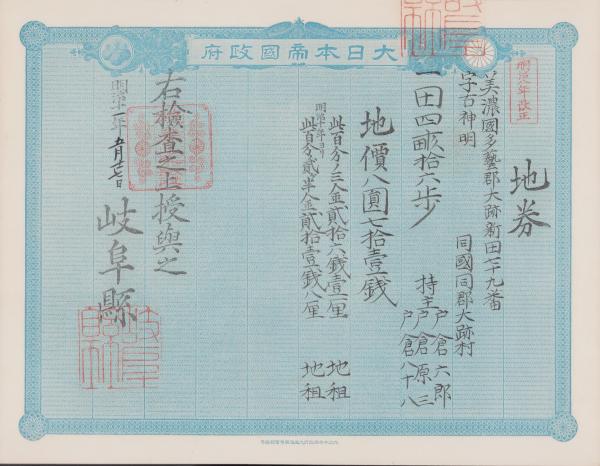 大日本帝國政府
明治八年改正
地券
美濃國多藝郡大跡新田七十九番
字百神明
同國同郡大跡村
一田四畝拾六歩
持主
戸倉六郎
戸倉原三
戸倉八十八
地價八圓七拾壹錢
此百分ノ三金貳拾六錢壹厘 地租
明治十年ヨリ
此百分貳半金貳拾壹錢八厘 地租
右檢査之上授與之
明治十一年
岐阜縣